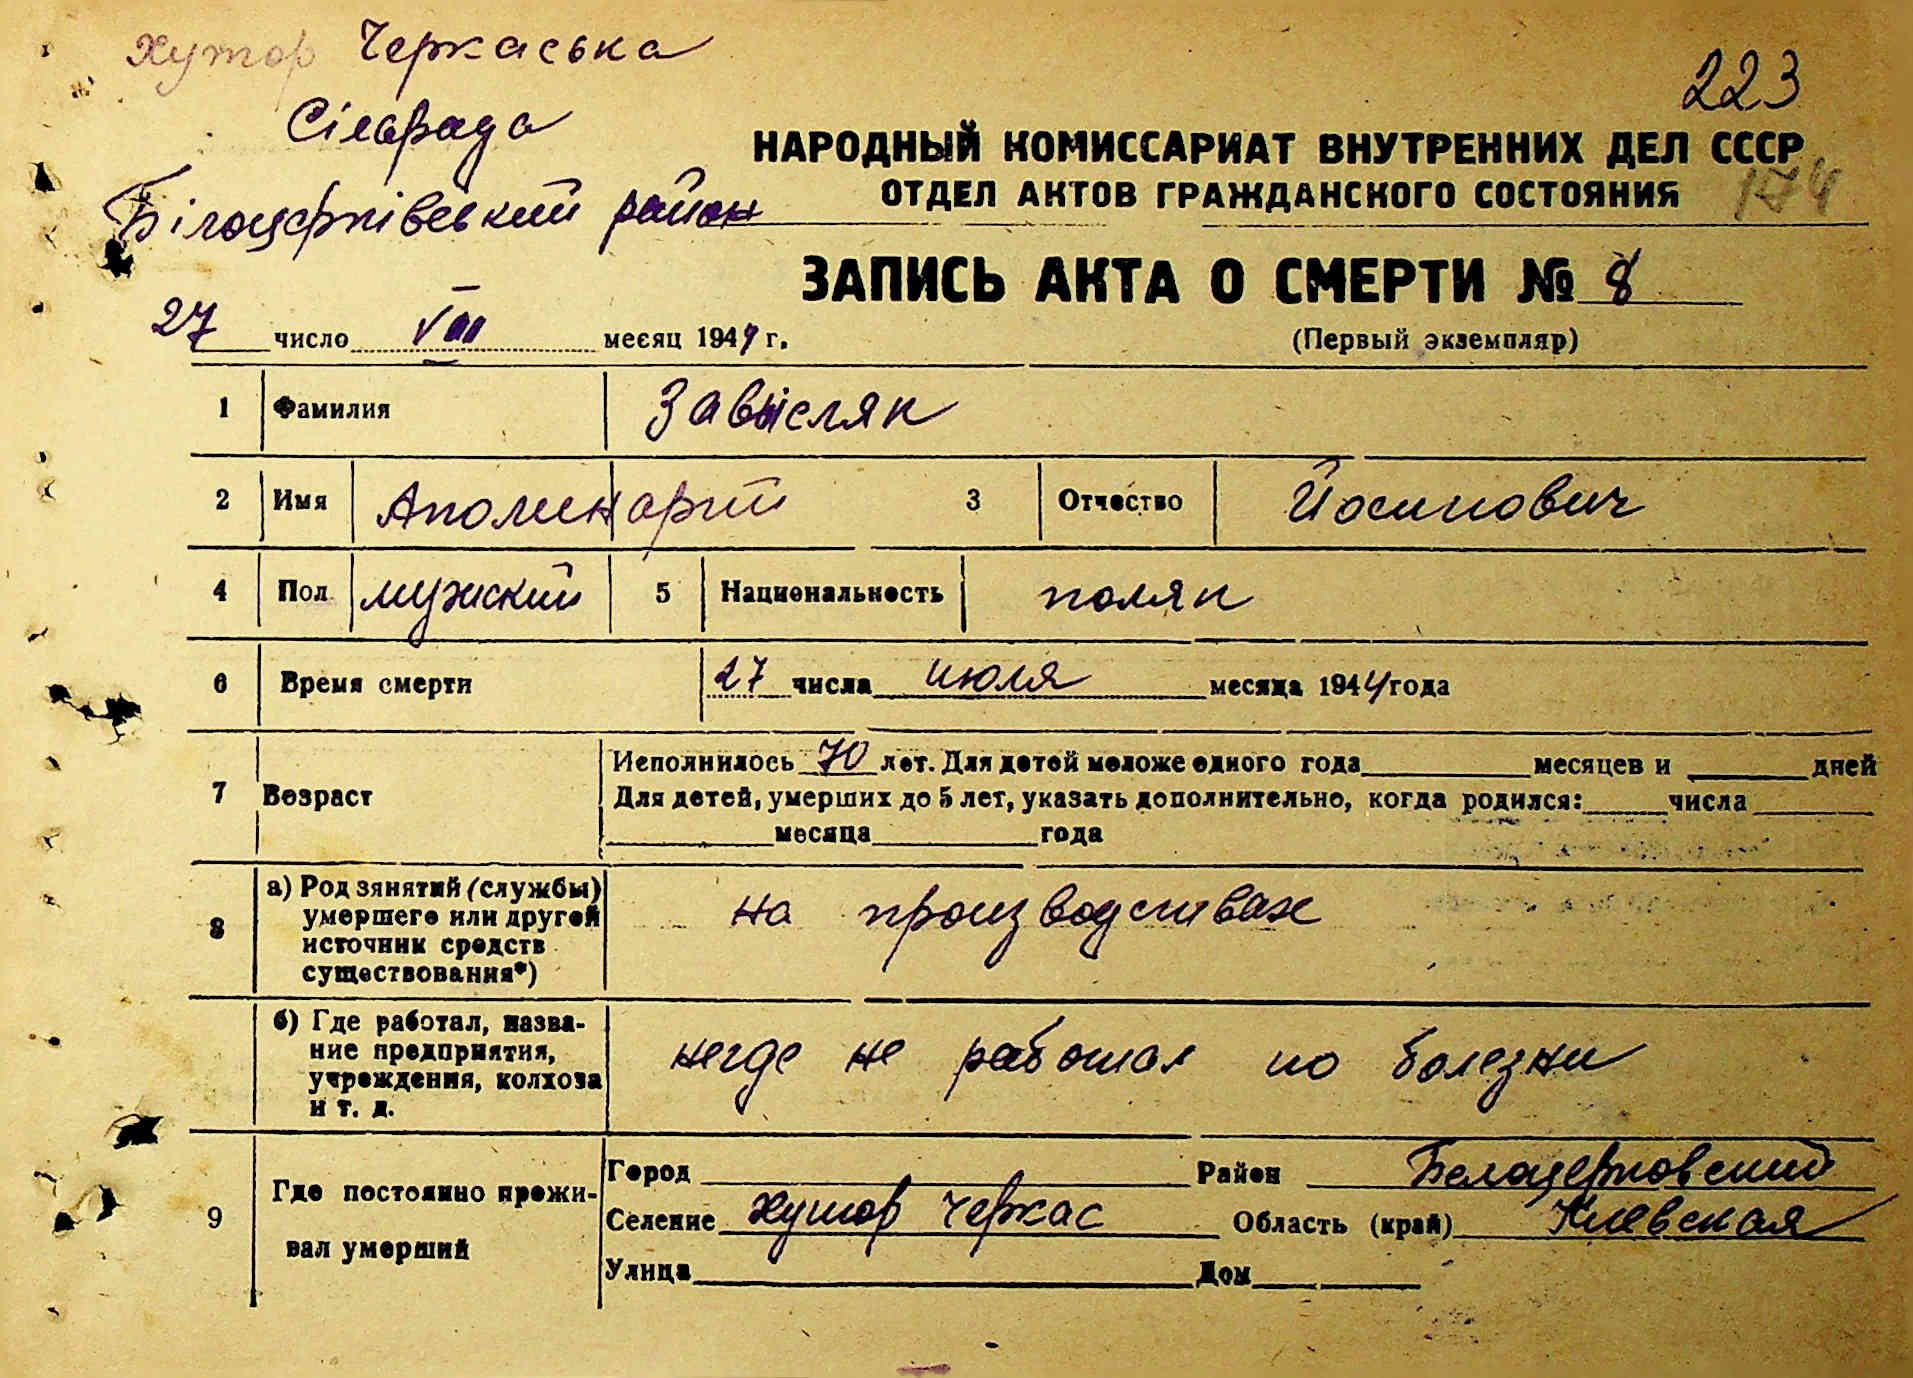 хутор Черкаська
223
Сільрада
НАРОДНЫЙ КОМИССАРИАТ ВНУТРЕННИХ ДЕЛ СССР
174
Білоцерківський район
ОТДЕЛ АКТОВ ГРАЖДАНСКОГО СОСТОЯНИЯ
ЗАПИСЬ АКТА О СМЕРТИ № 8
27 число VIII месяц 1944 г.
(Первый экземпляр)
1 Фамилия Завысляк
2 Имя Аполинарий 3 Отчество Йосипович
4 Пол мужский 5 Национальность поляк
6 Время смерти 27 числа июля месяца 1944 года
7 Возраст
Исполнилось 70 лет. Для детей моложе одного года месяцев и дней
Для детей, умерших до 5 лет, указать дополнительно, когда родился: числа
месяца года
8 а) Род занятий (службы) умершего или другой источник средств существования*)
на производствах
б) Где работал, название предприятия, учреждения, колхоза и т. д.
негде не работал по болезни
9 Где постоянно проживал умерший
Город Район Белоцерковский
Селение хутор Черкас Область (край) Киевская
Улица Дом